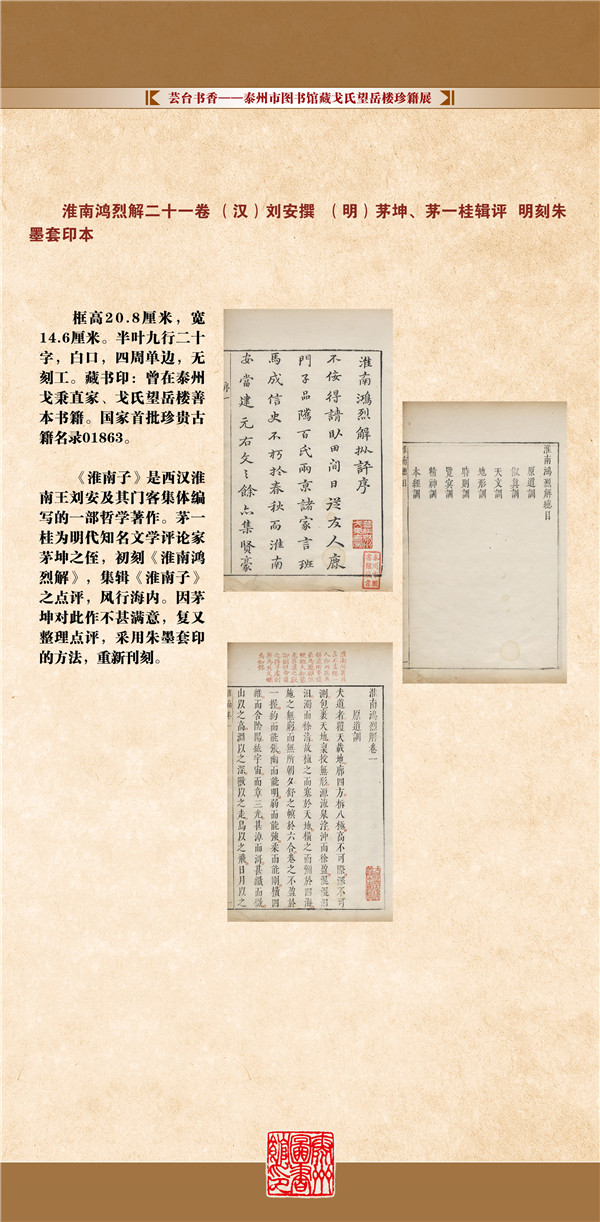 芸台书香——泰州市图书馆藏戈氏望岳楼珍籍展
淮南鸿烈解二十一卷（汉）刘安撰 （明）茅坤、茅一桂辑评 明刻朱
墨套印本
框高20.8厘米，宽
14.6厘米。半叶九行二十
字，白口，四周单边，无
刻工。藏书印：曾在泰州
戈秉直家、戈氏望岳楼善
本书籍。国家首批珍贵古
籍名录01863。
《淮南子》是西汉淮
南王刘安及其门客集体编
写的一部哲学著作。茅一
桂为明代知名文学评论家
茅坤之侄，初刻《淮南鸿
烈解》，集辑《淮南子》
之点评，风行海内。因茅
坤对此作不甚满意，复又
整理点评，采用朱墨套印
的方法，重新刊刻。
淮南鴻烈解批評序
不佞得請臥田間日從友人鹿
門子品隲百氏兩京諸家言班
馬成信史不朽於春秋而淮南
安當建元右文之餘亦集賢豪
序一
淮南鴻烈解總目
原道訓
俶真訓
天文訓
地形訓
時則訓
覽冥訓
精神訓
本經訓
淮南鴻烈解卷一
原道訓
夫道者覆天載地廓四方柝八極高不可際深不可
測包裹天地稟授無形源流泉浡沖而徐盈混混汩
汩濁而徐清故植之而塞於天地橫之而彌於四海
施之無窮而無所朝夕舒之幎於六合卷之不盈於
一握約而能張幽而能明弱而能強柔而能剛橫四
維而含陰陽紘宇宙而章三光甚淖而滒甚纖而微
山以之高淵以之深獸以之走鳥以之飛日月以之
泰州圖書館印